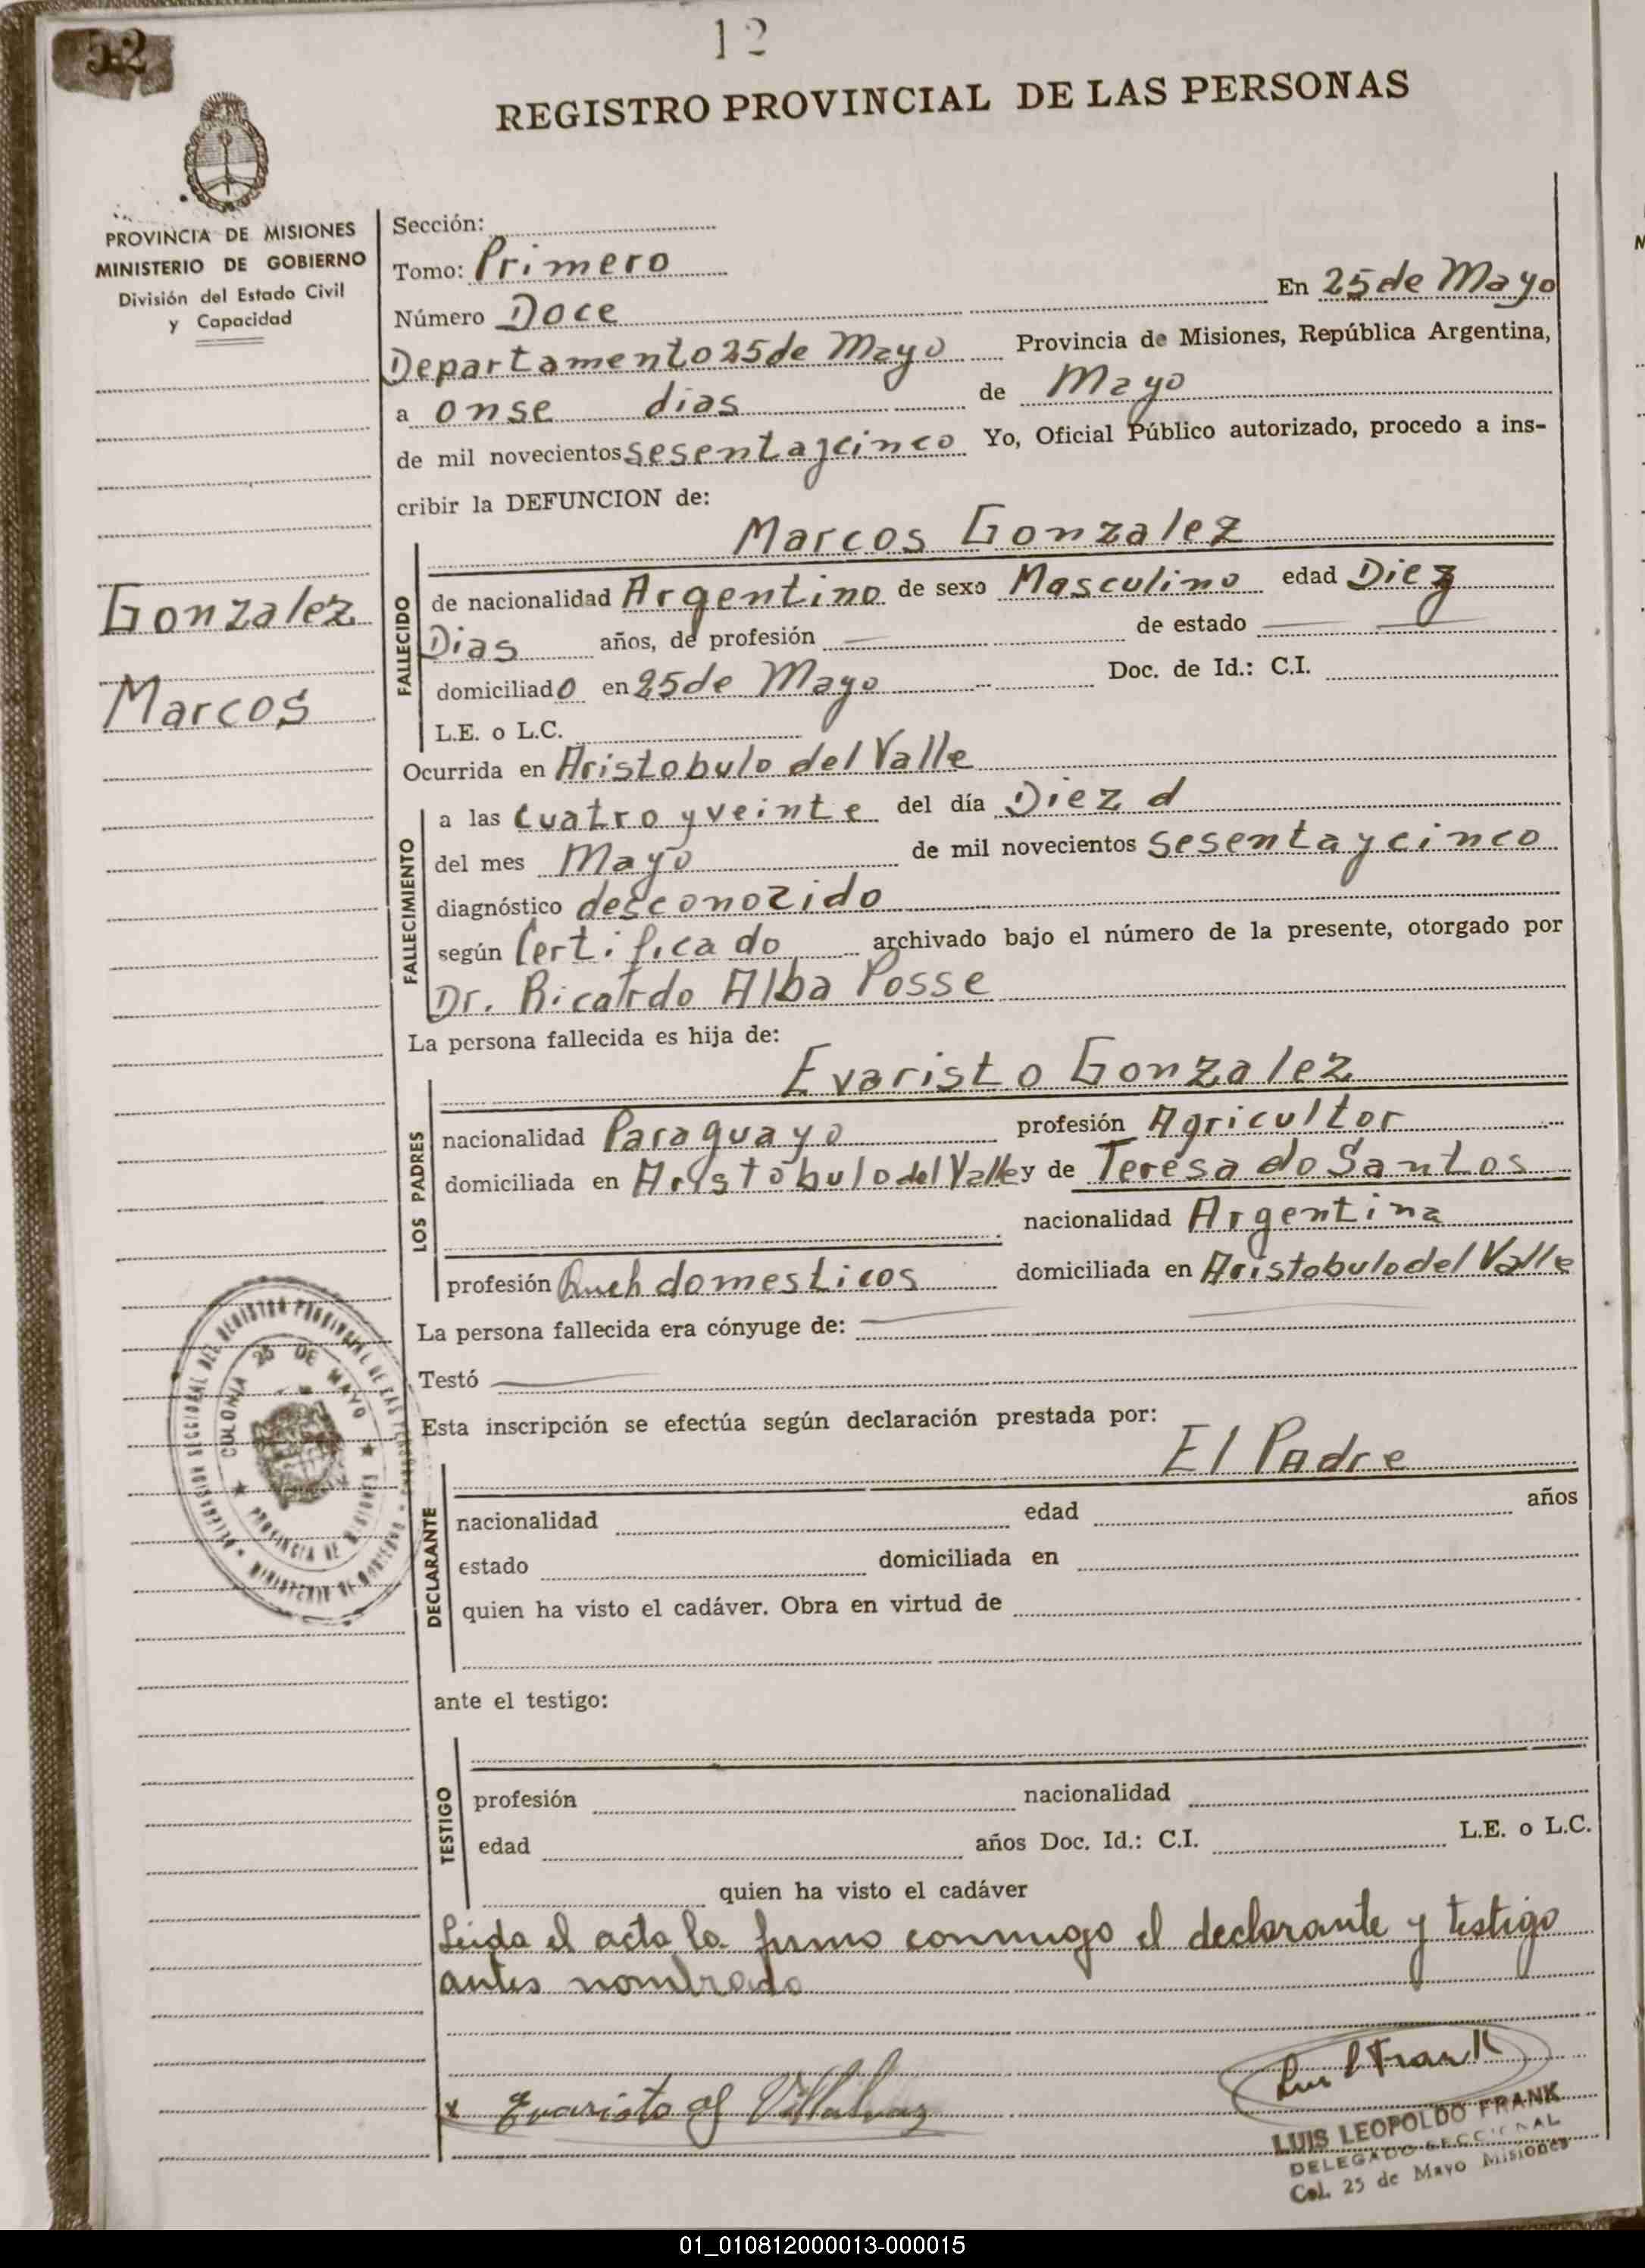 52
12
REGISTRO PROVINCIAL DE LAS PERSONAS
PROVINCIA DE MISIONES
MINISTERIO DE GOBIERNO
División del Estado Civil
y Capacidad
Sección:
Tomo: Primero
Número Doce En 25 de Mayo
Departamento 25 de Mayo Provincia de Misiones, República Argentina,
a onse dias de Mayo
de mil novecientos sesenta y cinco Yo, Oficial Público autorizado, procedo a ins-
cribir la DEFUNCION de:
Marcos Gonzalez
Gonzalez
Marcos
FALLECIDO
de nacionalidad Argentino de sexo Masculino edad Diez
Dias años, de profesión de estado
domiciliado en 25 de Mayo Doc. de Id.: C.I.
L.E. o L.C.
Ocurrida en Aristobulo del Valle
FALLECIMIENTO
a las cuatro y veinte del día Diez d
del mes Mayo de mil novecientos sesenta y cinco
diagnóstico desconozido
según Certificado archivado bajo el número de la presente, otorgado por
Dr. Ricardo Alba Posse
La persona fallecida es hija de:
Evaristo Gonzalez
LOS PADRES
nacionalidad Paraguayo profesión Agricultor
domiciliada en Aristobulo del Valle y de Teresa do Santos
nacionalidad Argentina
profesión domesticos domiciliada en Aristobulo del Valle
La persona fallecida era cónyuge de:
Testó
Esta inscripción se efectúa según declaración prestada por:
El Padre
DECLARANTE
nacionalidad edad años
estado domiciliada en
quien ha visto el cadáver. Obra en virtud de
COLONIA 25 DE MAYO
PROVINCIA DE MISIONES
ante el testigo:
TESTIGO
profesión nacionalidad
edad años Doc. Id.: C.I. L.E. o L.C.
quien ha visto el cadáver
Leida el acta la firmo conmigo el declarante y testigo
antes nombrado
x Evaristo
Luis L Frank
LUIS LEOPOLDO FRANK
DELEGADO SECCIONAL
Col. 25 de Mayo Misiones
01_010812000013-000015